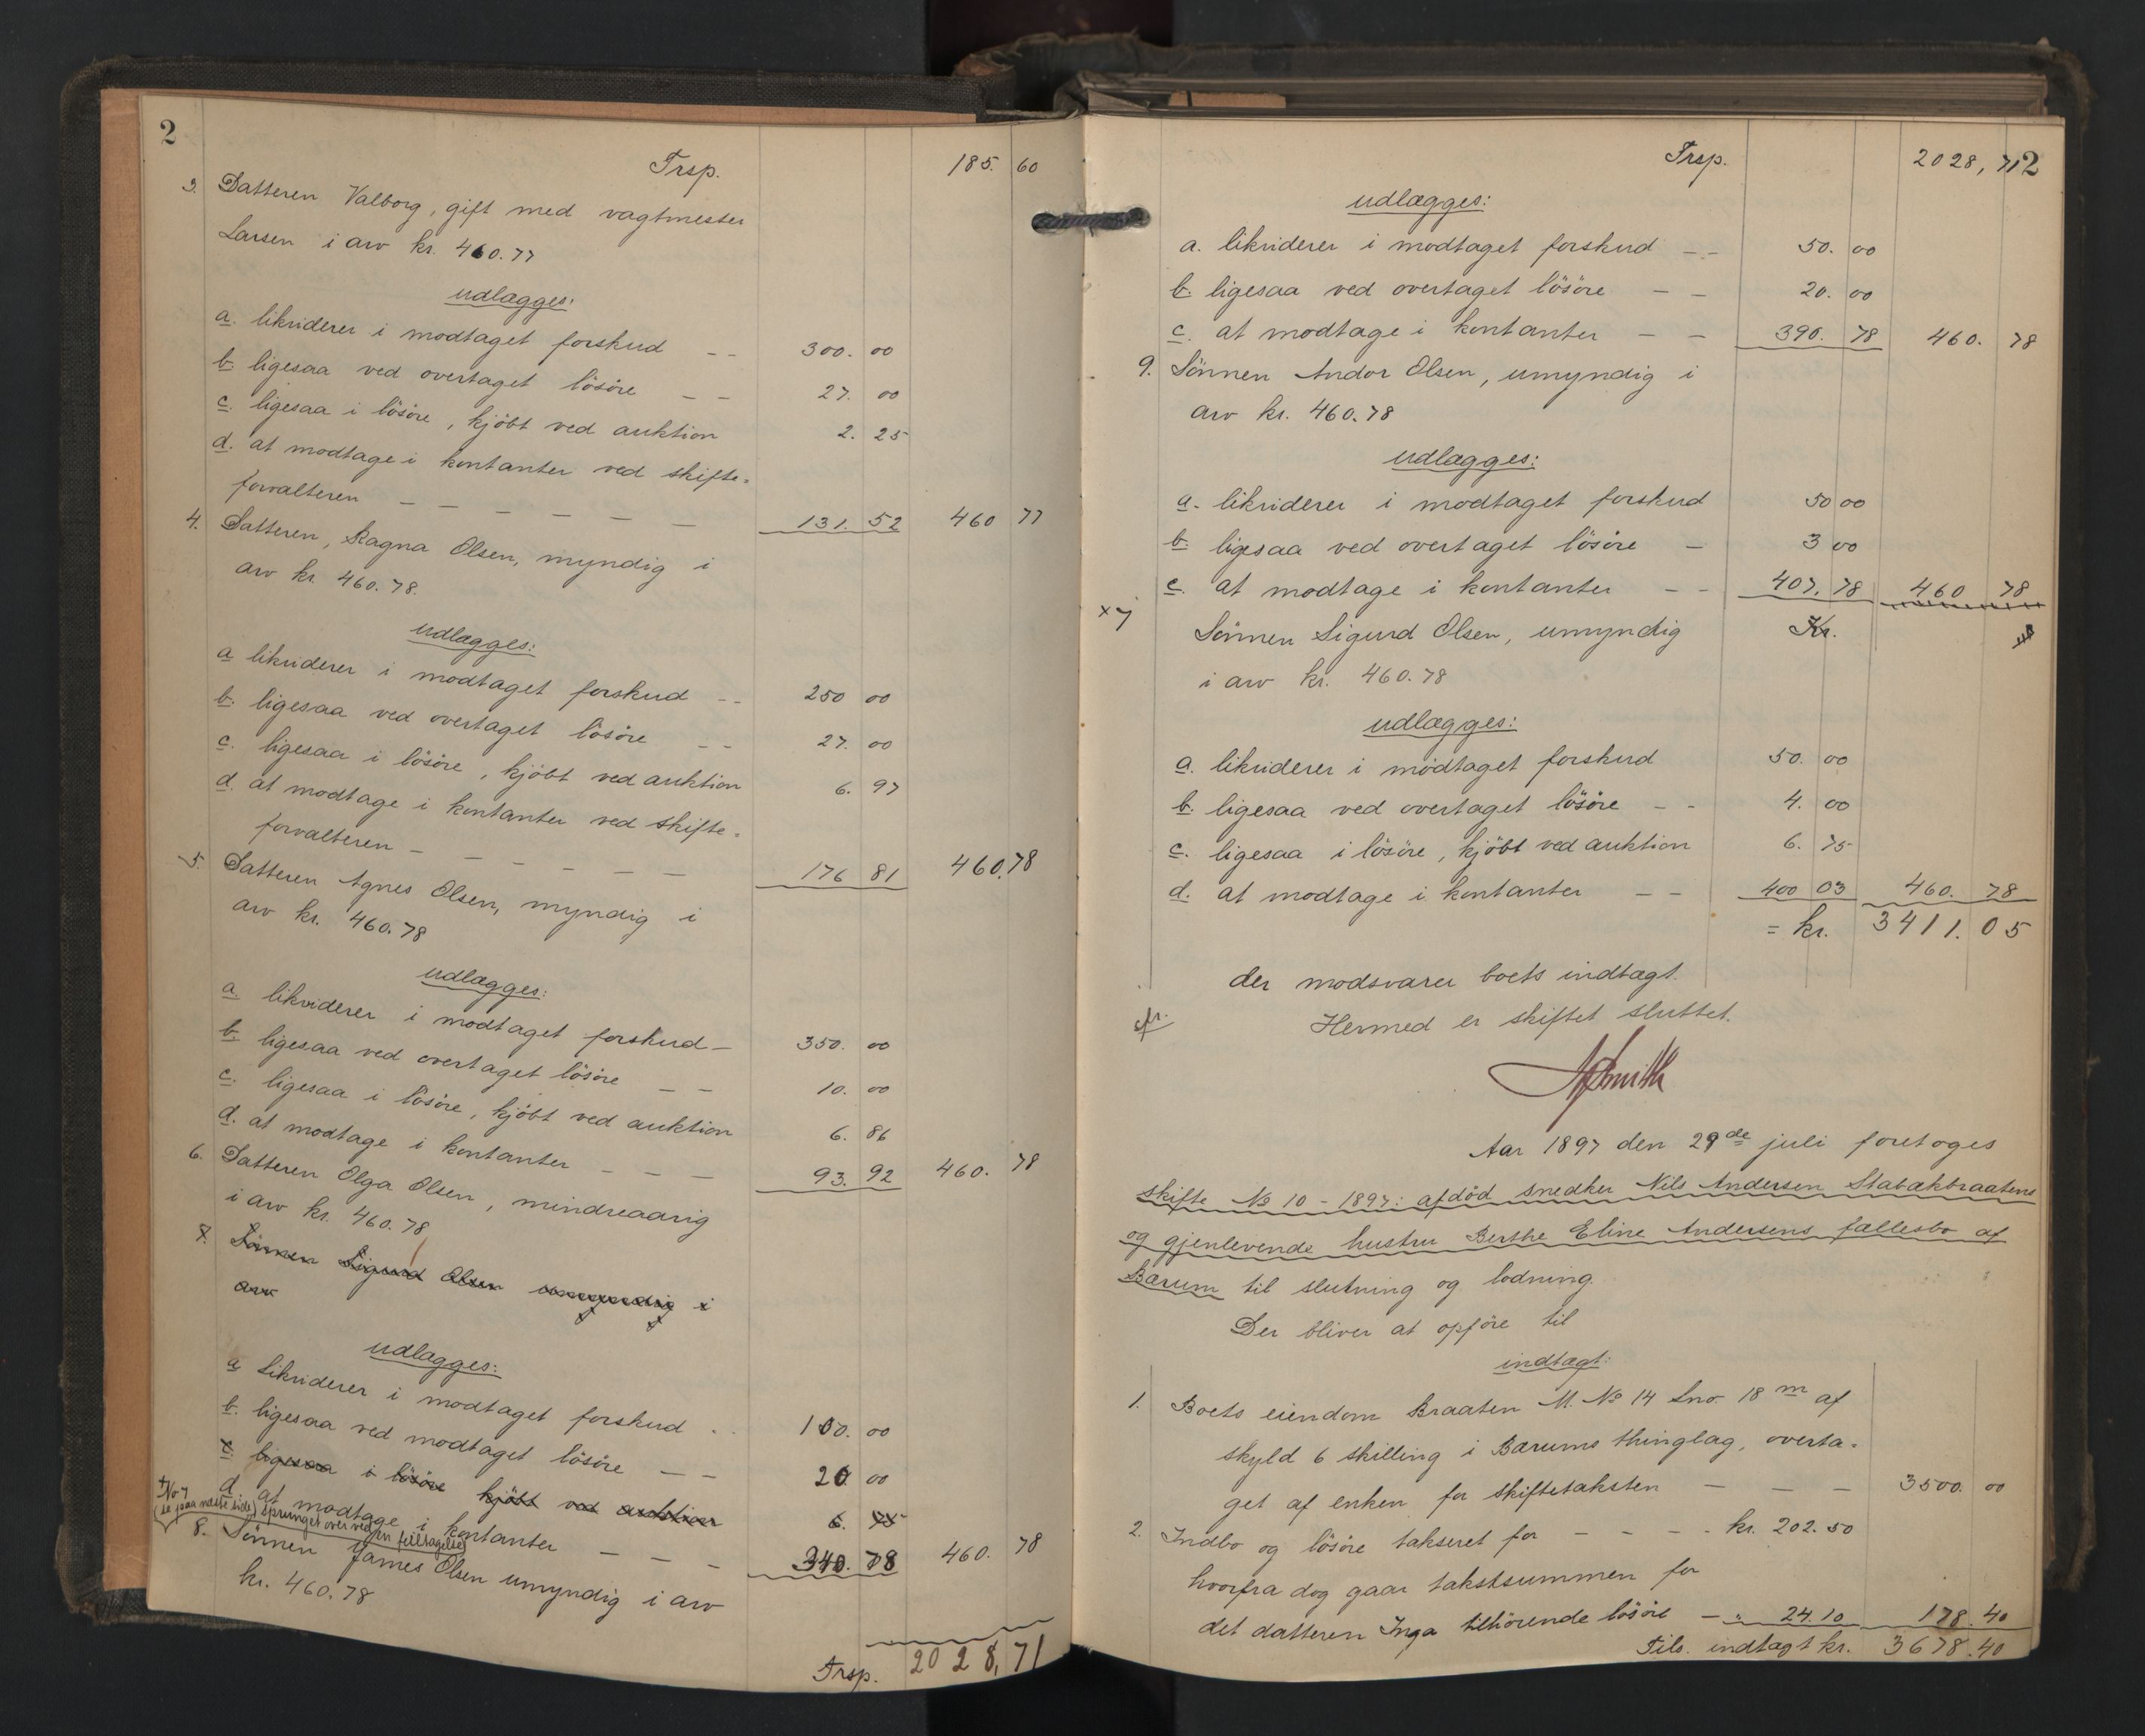 2
Trsp. 185. 60
3. Datteren Valborg, gift med vagtmester
Larsen i arv kr. 460.77
udlægges:
a. likviderer i modtaget forskud -- 300. 00
b. ligesaa ved overtaget lösöre -- 27. 00
c. ligesaa i lösöre, kjöbt ved auktion 2. 25
d. at modtage i kontanter ved skifte=
forvalteren - - - - - - 131. 52 460 77
4. Datteren, Ragna Olsen, myndig i
arv kr. 460.78.
udlægges:
a likviderer i modtaget forskud -- 250 00
b. ligesaa ved overtaget lösöre -- 27. 00
c. ligesaa i lösöre, kjöbt ved auktion 6. 97
d. at modtage i kontanter ved skifte=
forvalteren - - - - - - 176 81 460.78
5. Datteren Agnes Olsen, myndig i
arv kr. 460.78
udlægges:
a likviderer i modtaget forskud - 350. 00
b. ligesaa ved overtaget lösöre -- 10. 00
c. ligesaa i lösöre, kjöbt ved auktion 6. 86
d. at modtage i kontanter - - - 93. 92 460. 78
6. Datteren Olga Olsen, mindreaarig
i arv kr. 460.78
7. Sönnen Sigurd Olsen umyndig i
arv
udlægges:
a Likviderer i modtaget forskud .. 100. 00
b. ligesaa ved modtaget lösöre -- 20. 00
c. ligesaa i lösöre kjöbt ved auktion 6. 75
d. at modtage i kontanter - - - 340. 78 460. 78
+No 7
(se paa næste side) sprunget over ved en feiltagelse
8. Sönnen James Olsen umyndig i arv
kr. 460.78
Trsp. 2028,71
Trsp. 2028,71
2
udlægges:
a. likviderer i modtaget forskud -- 50. 00
b. ligesaa ved overtaget lösöre -- 20. 00
c. at modtage i kontanter -- 390. 78 460. 78
9. Sönnen Andor Olsen, umyndig i
arv kr. 460.78
udlægges:
a. likviderer i modtaget forskud 50 00
b. ligesaa ved overtaget lösöre - 3 00
c. at modtage i kontanter -- 407. 78 460 78
x7 Sönnen Sigurd Olsen, umyndig Kr.
i arv kr. 460.78
udlægges:
a. likviderer i modtaget forskud 50. 00
b. ligesaa ved overtaget lösöre -- 4. 00
c. ligesaa i lösöre, kjöbt ved auktion 6. 75
d. at modtage i kontanter -- 400 03 460. 78
= kr. 3411.05
der modsvarer boets indtægt.
cfr. Hermed er skiftet sluttet.
Smith
Aar 1897 den 29de juli foretoges
skifte No 10 - 1897: afdöd snedker Nils Andersen Stabækbraatens
og gjenlevende hustru Berthe Eline Andersens fællesbo af
Bærum til slutning og lodning.
Der bliver at opföre til
indtægt:
1. Boets eiendom Braaten M. No 14 Lno. 18 m af
skyld 6 skilling i Bærums thinglag, overta=
get af enken for skiftetaksten - - - 3500. 00
2. Indbo og lösöre takseret for - - - - kr. 202.50
hvorfra dog gaar takstsummen for
det datteren Inga tilhörende lösöre - " 24.10 178.40
Tils. indtægt kr. 3678.40